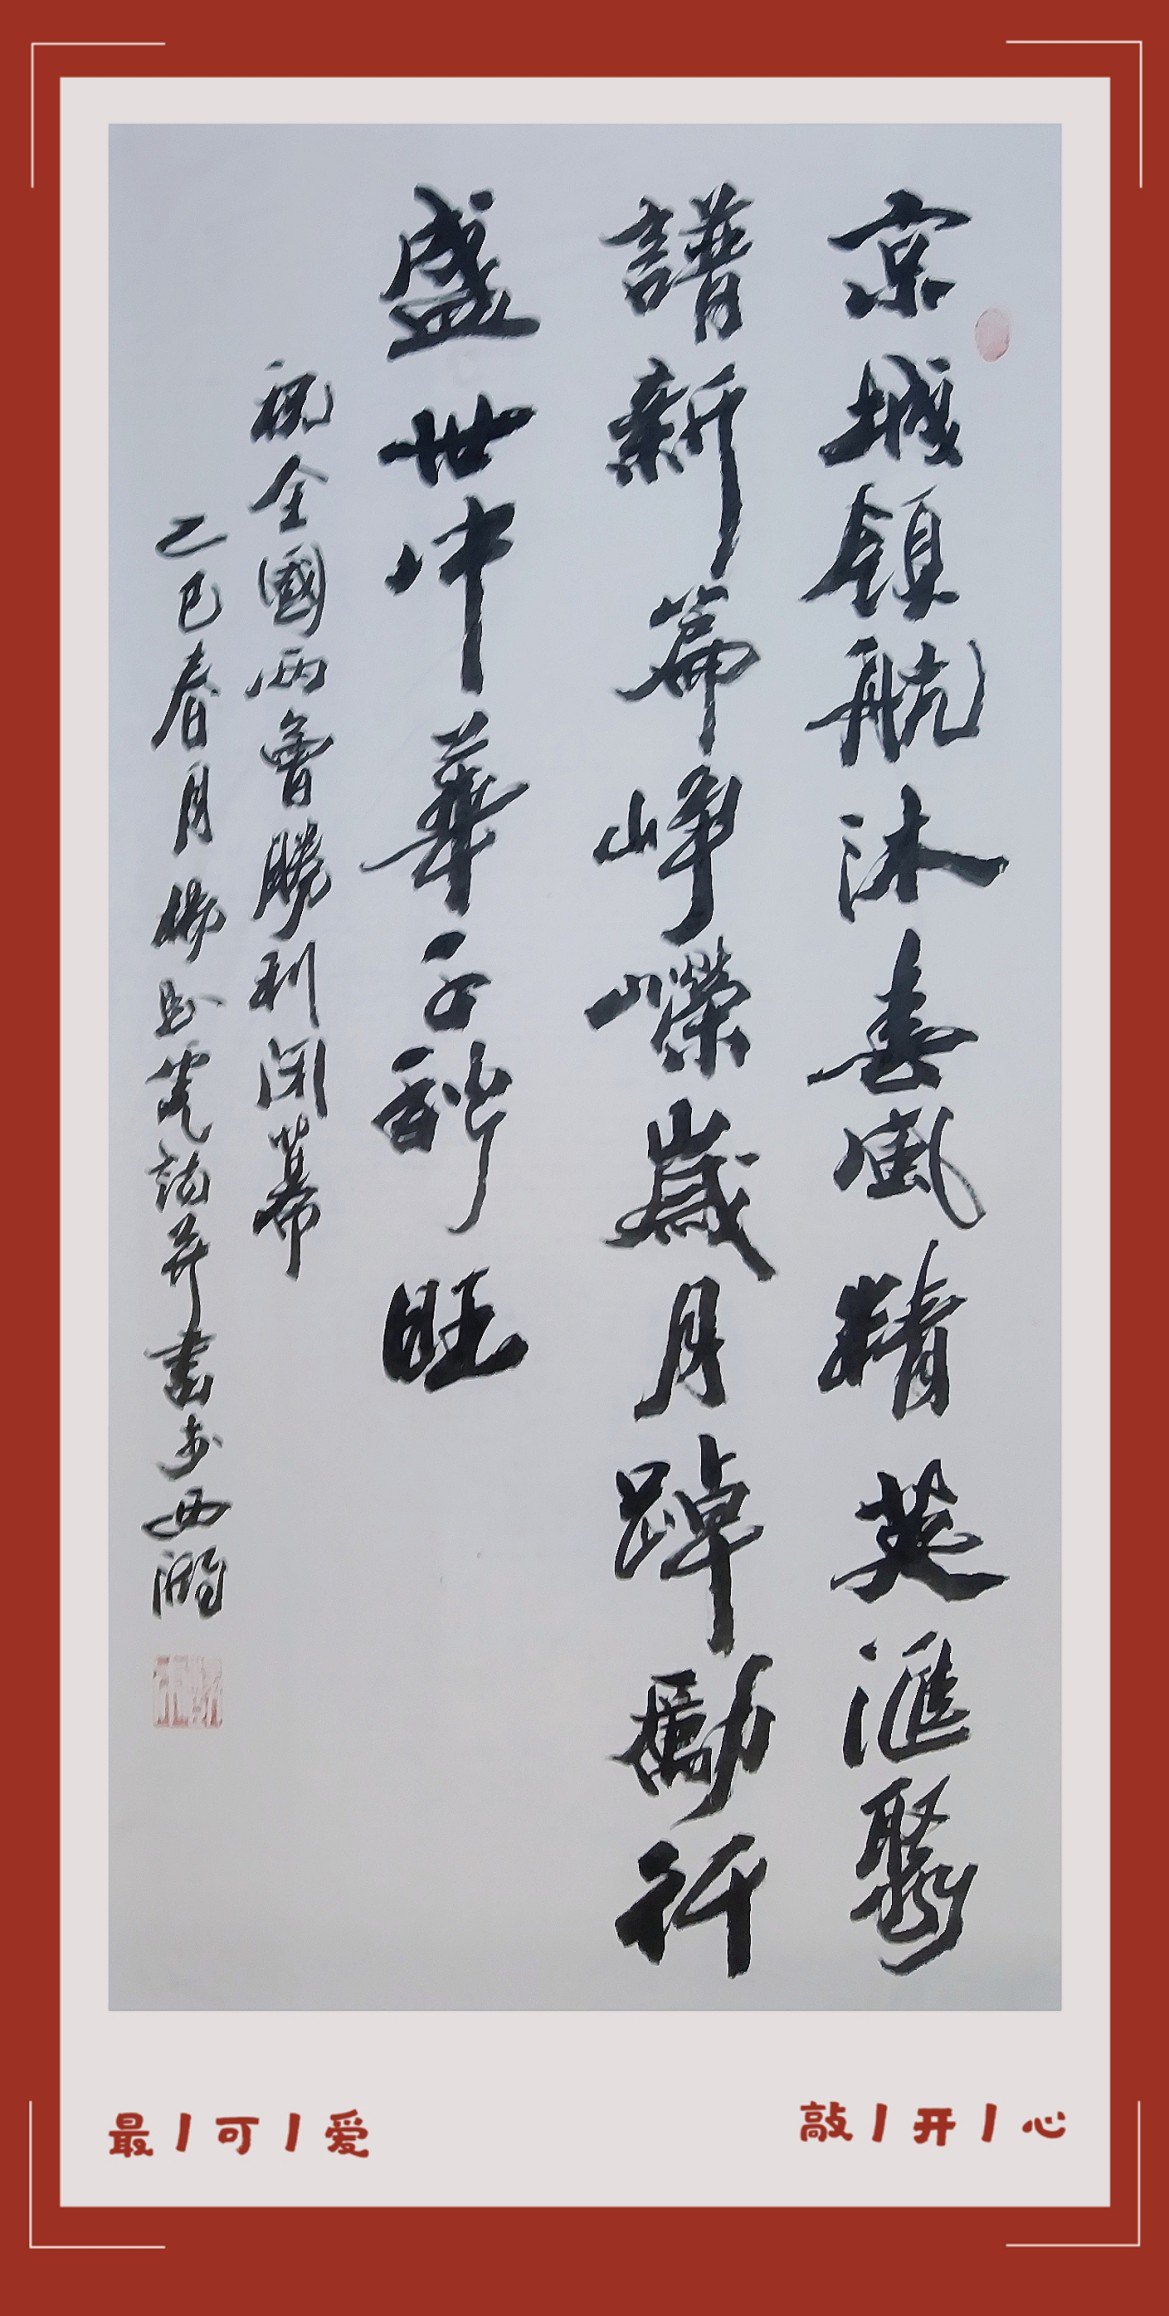 京城領航沐春風精英滙聚
譜新篇崢嶸歲月踔勵行
盛世中華千秋旺
祝全國兩會勝利閉幕
乙巳春月楊并書於西
最丨可丨爱
敲丨开丨心